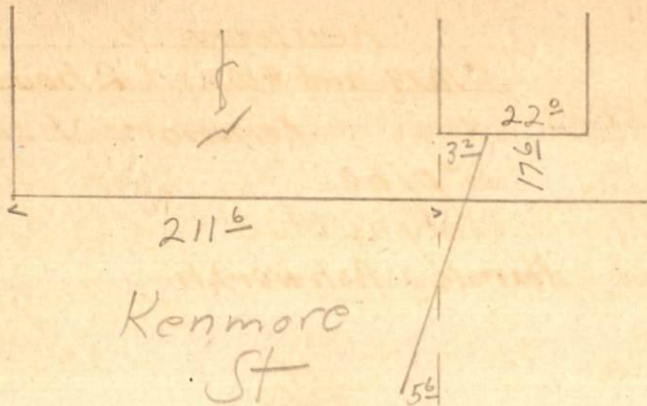 22⁰
3²
17⁶
211⁶
Kenmore
St
5⁶